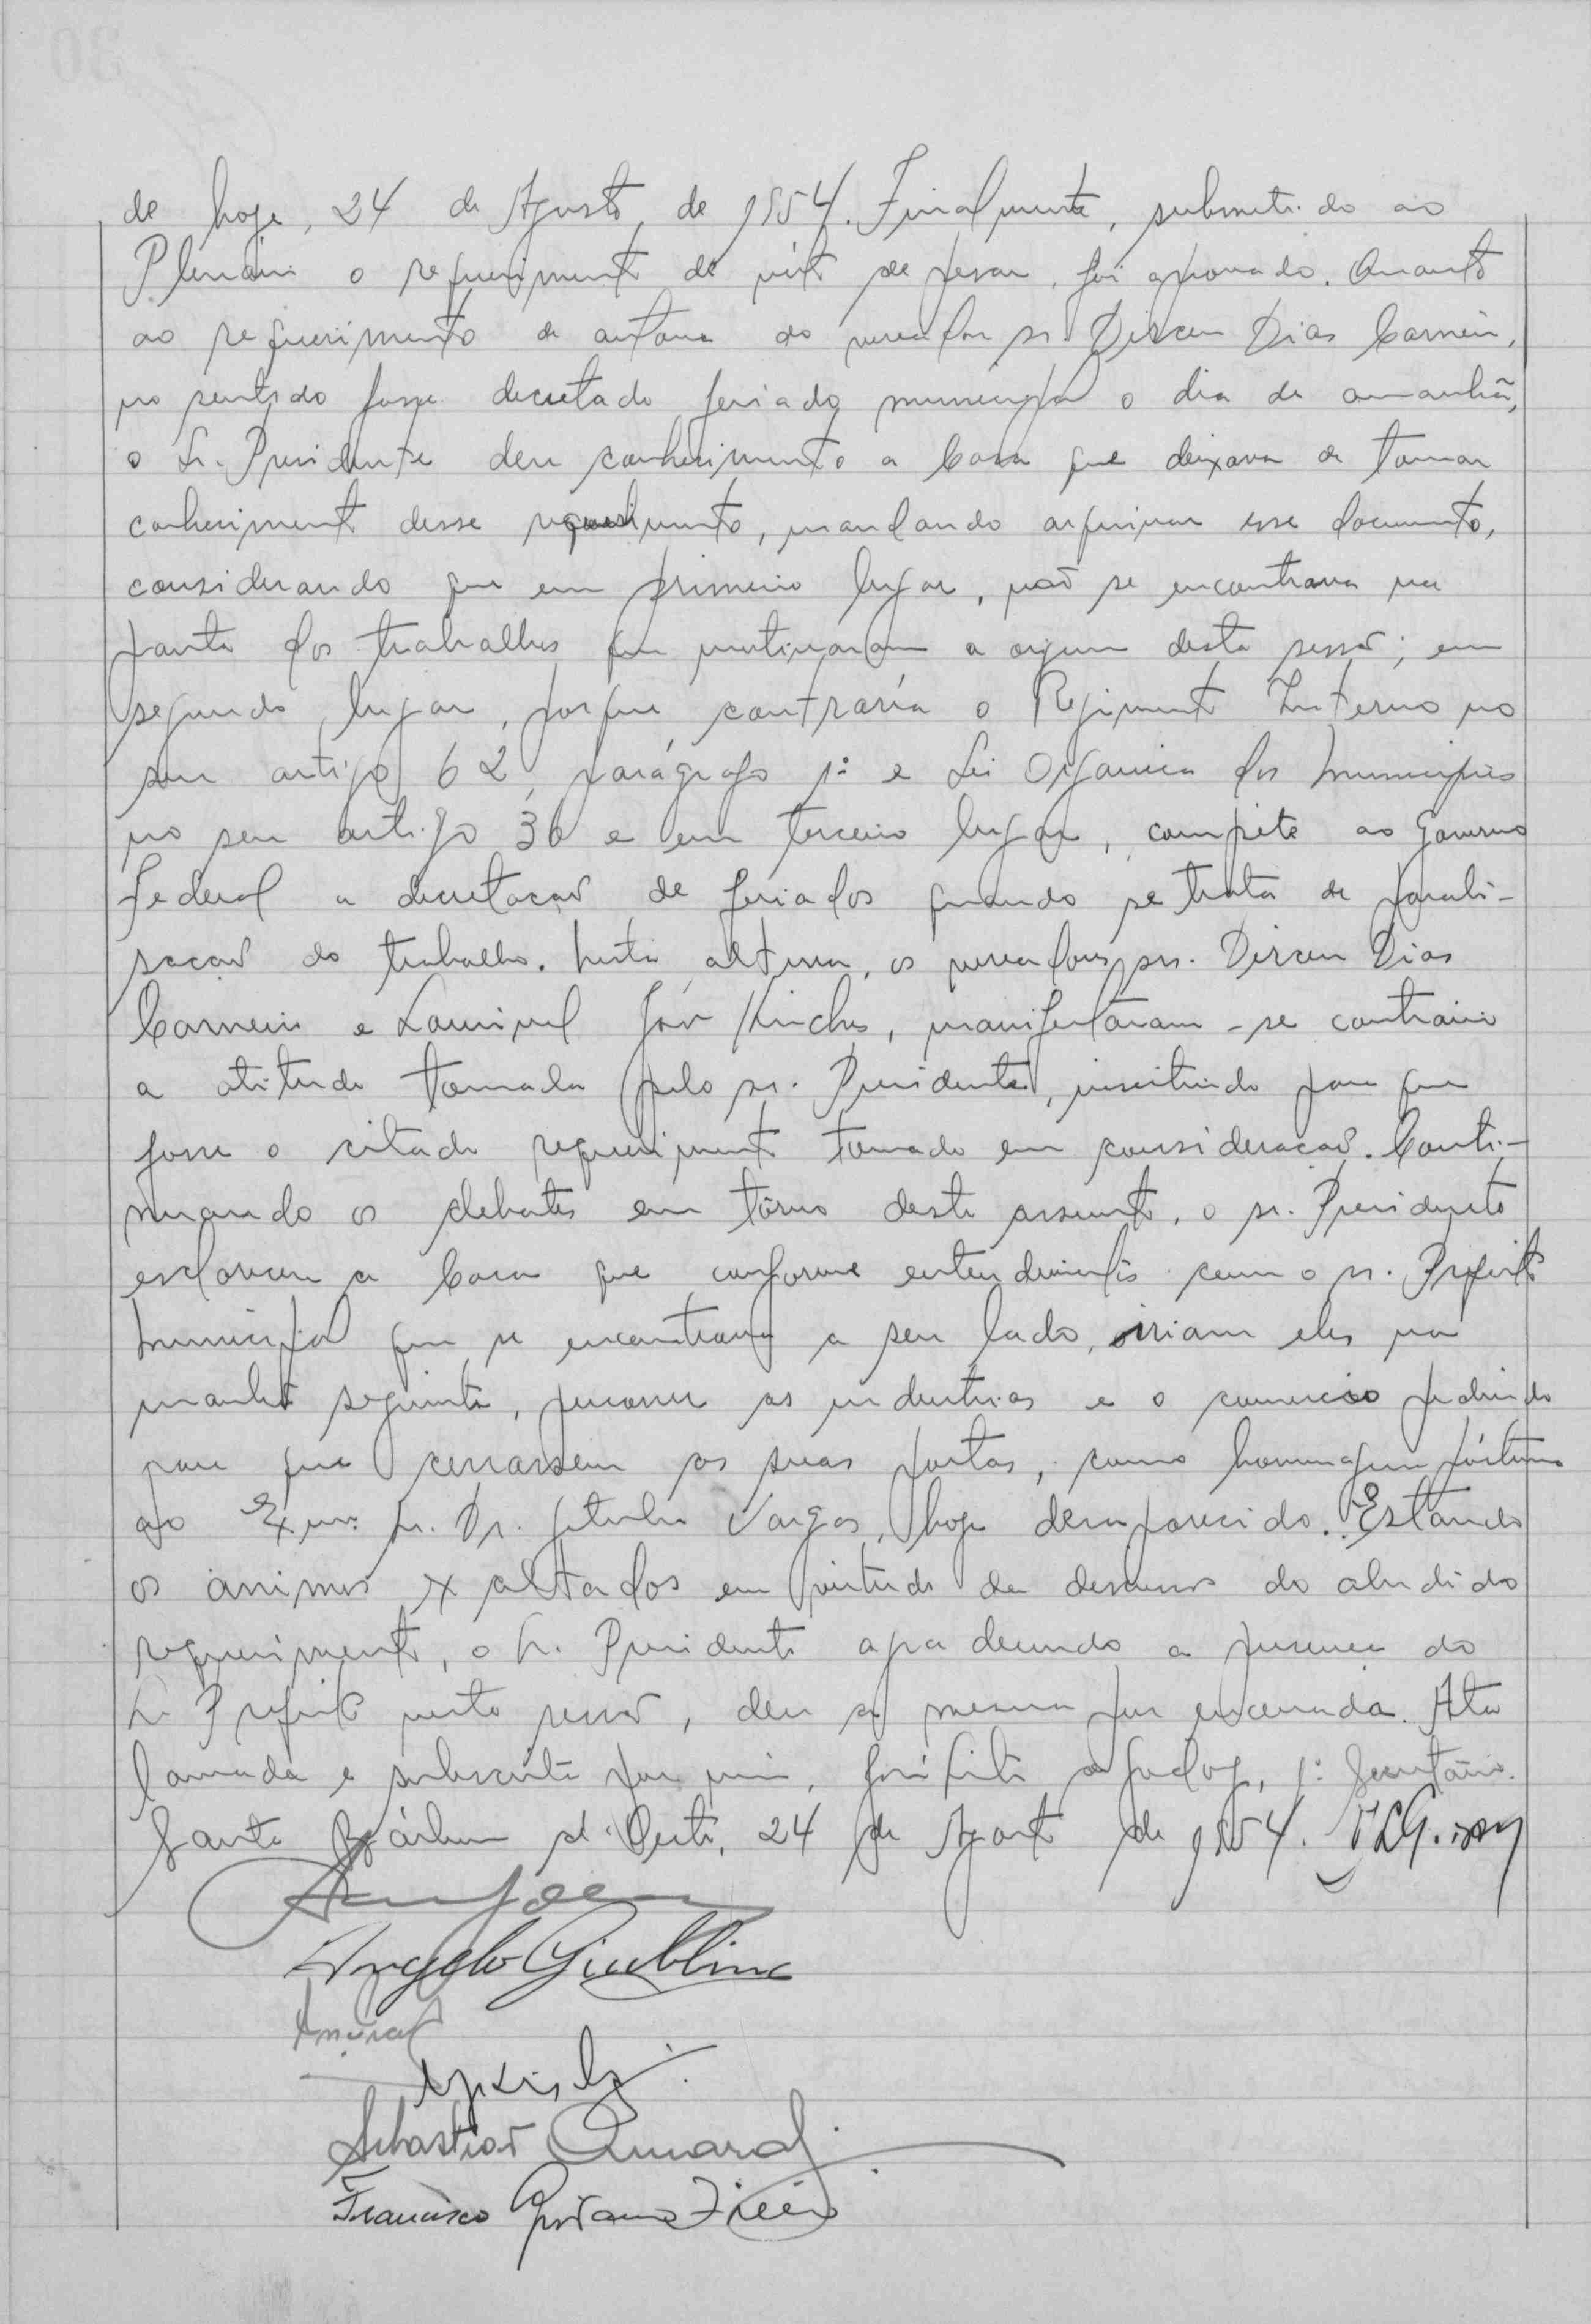 de hoje, 24 de Agosto, de 1954. Finalmente, submetido ao
Plenário o requerimento de voto de pesar, foi aprovado. Quanto
ao requerimento de autoria do vereador sr. Dirceu Dias Carneiro,
no sentido fosse decretado feriado municipal o dia de amanhã,
o Sr. Presidente deu conhecimento a Casa que deixava de tomar
conhecimento desse requerimento, mandando arquivar esse documento,
considerando que em primeiro lugar, não se encontrava na
pauta dos trabalhos que motivaram a origem desta sessão; em
segundo lugar, porque contraría o Regimento Interno no
seu artigo 62, parágrafo 1º e Lei Organica dos Municipios
no seu artigo 30 e em terceiro lugar, compete ao Governo
Federal a decretação de feriados quando se trata de parali-
sação do trabalho. Nesta altura, os vereadores srs. Dirceu Dias
Carneiro e Laurival José, manifestaram-se contrário
a atitude tomada pelo sr. Presidente, insistindo para que
fosse o citado requerimento tomado em consideração. Conti-
nuando os debates em tôrno deste assunto, o sr. Presidente
esclareceu a Casa que conforme entendimentos com o sr. Prefeito
Municipal que se encontrava a seu lado, iriam eles na
manhã seguinte, percorrer as industrias e o comercio pedindo
para que cerrassem as suas portas, como homenagem póstuma
ao Exmo. Sr. Dr. Getulio Vargas, hoje desaparecido. Estando
os animos exaltados em virtude da do aludido
requerimento, o Sr. Presidente agradecendo a presença do
Sr. Prefeito nesta sessão, deu a mesma por encerrada. Ata
lavrada e subscrita por mim, José Leite de Godoy, 1º Secretário.
Santa Bárbara d'Oeste, 24 de Agosto de 1954.
Angelo Giubbina
Amaral
Sebastião Amaral
Francisco